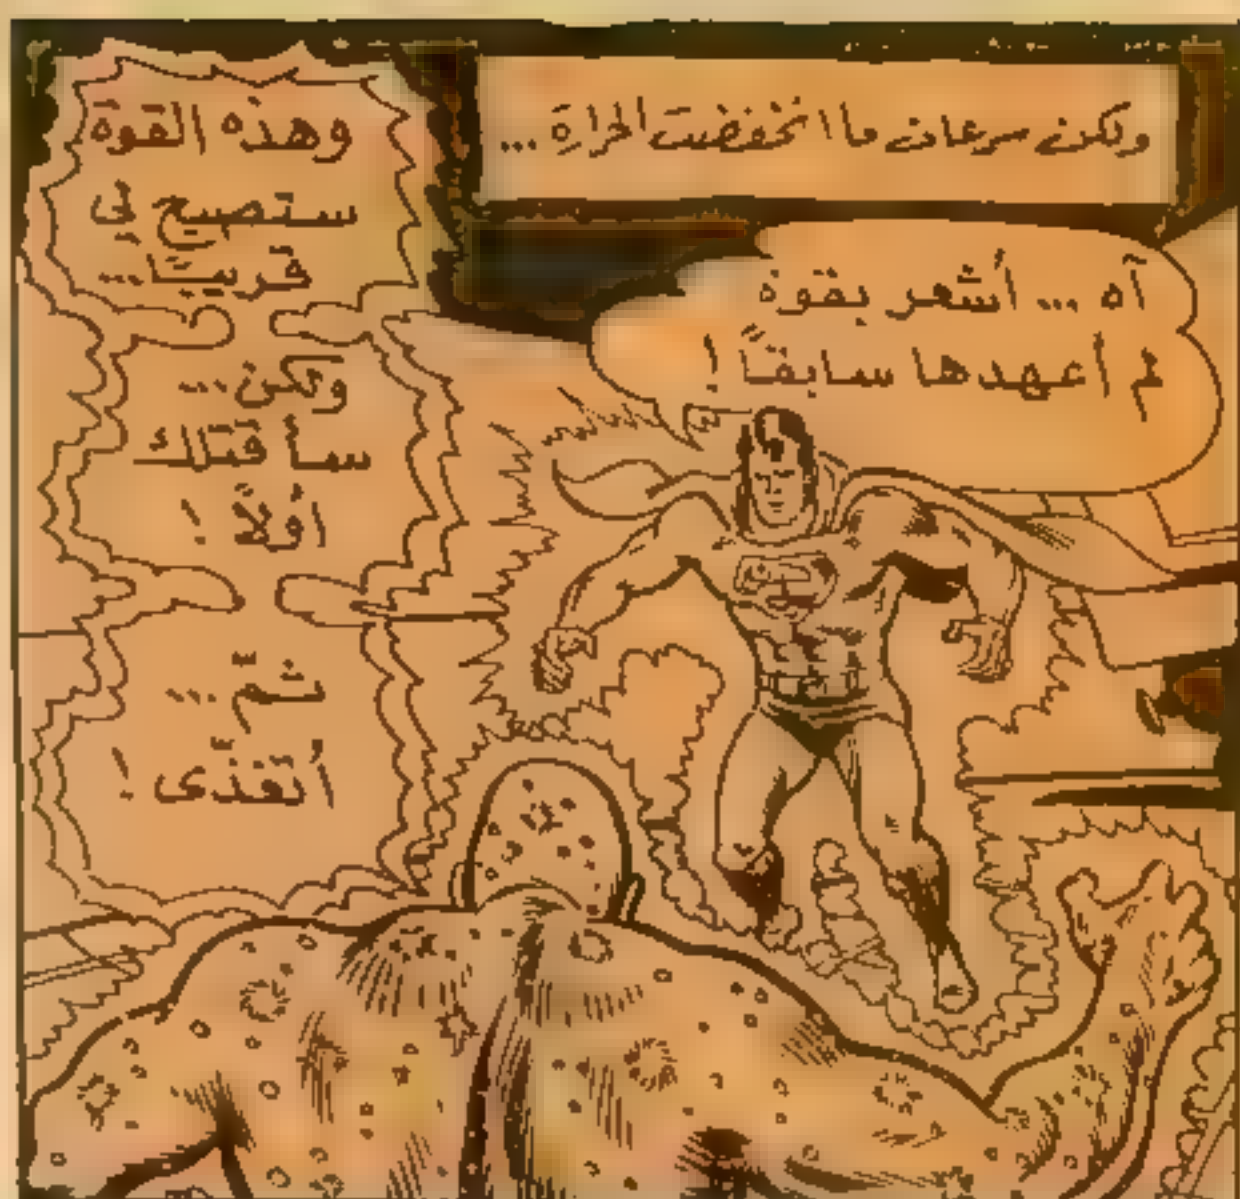 ولكن سرعان ما انخفضت الحرارة...
آه ... أشعر بقوة
لم أعهدها سابقاً !
وهذه القوة
ستصبح لي
قريباً...
ولكن...
سأقتلك
أولاً !
ثمّ ...
أتغذّى !